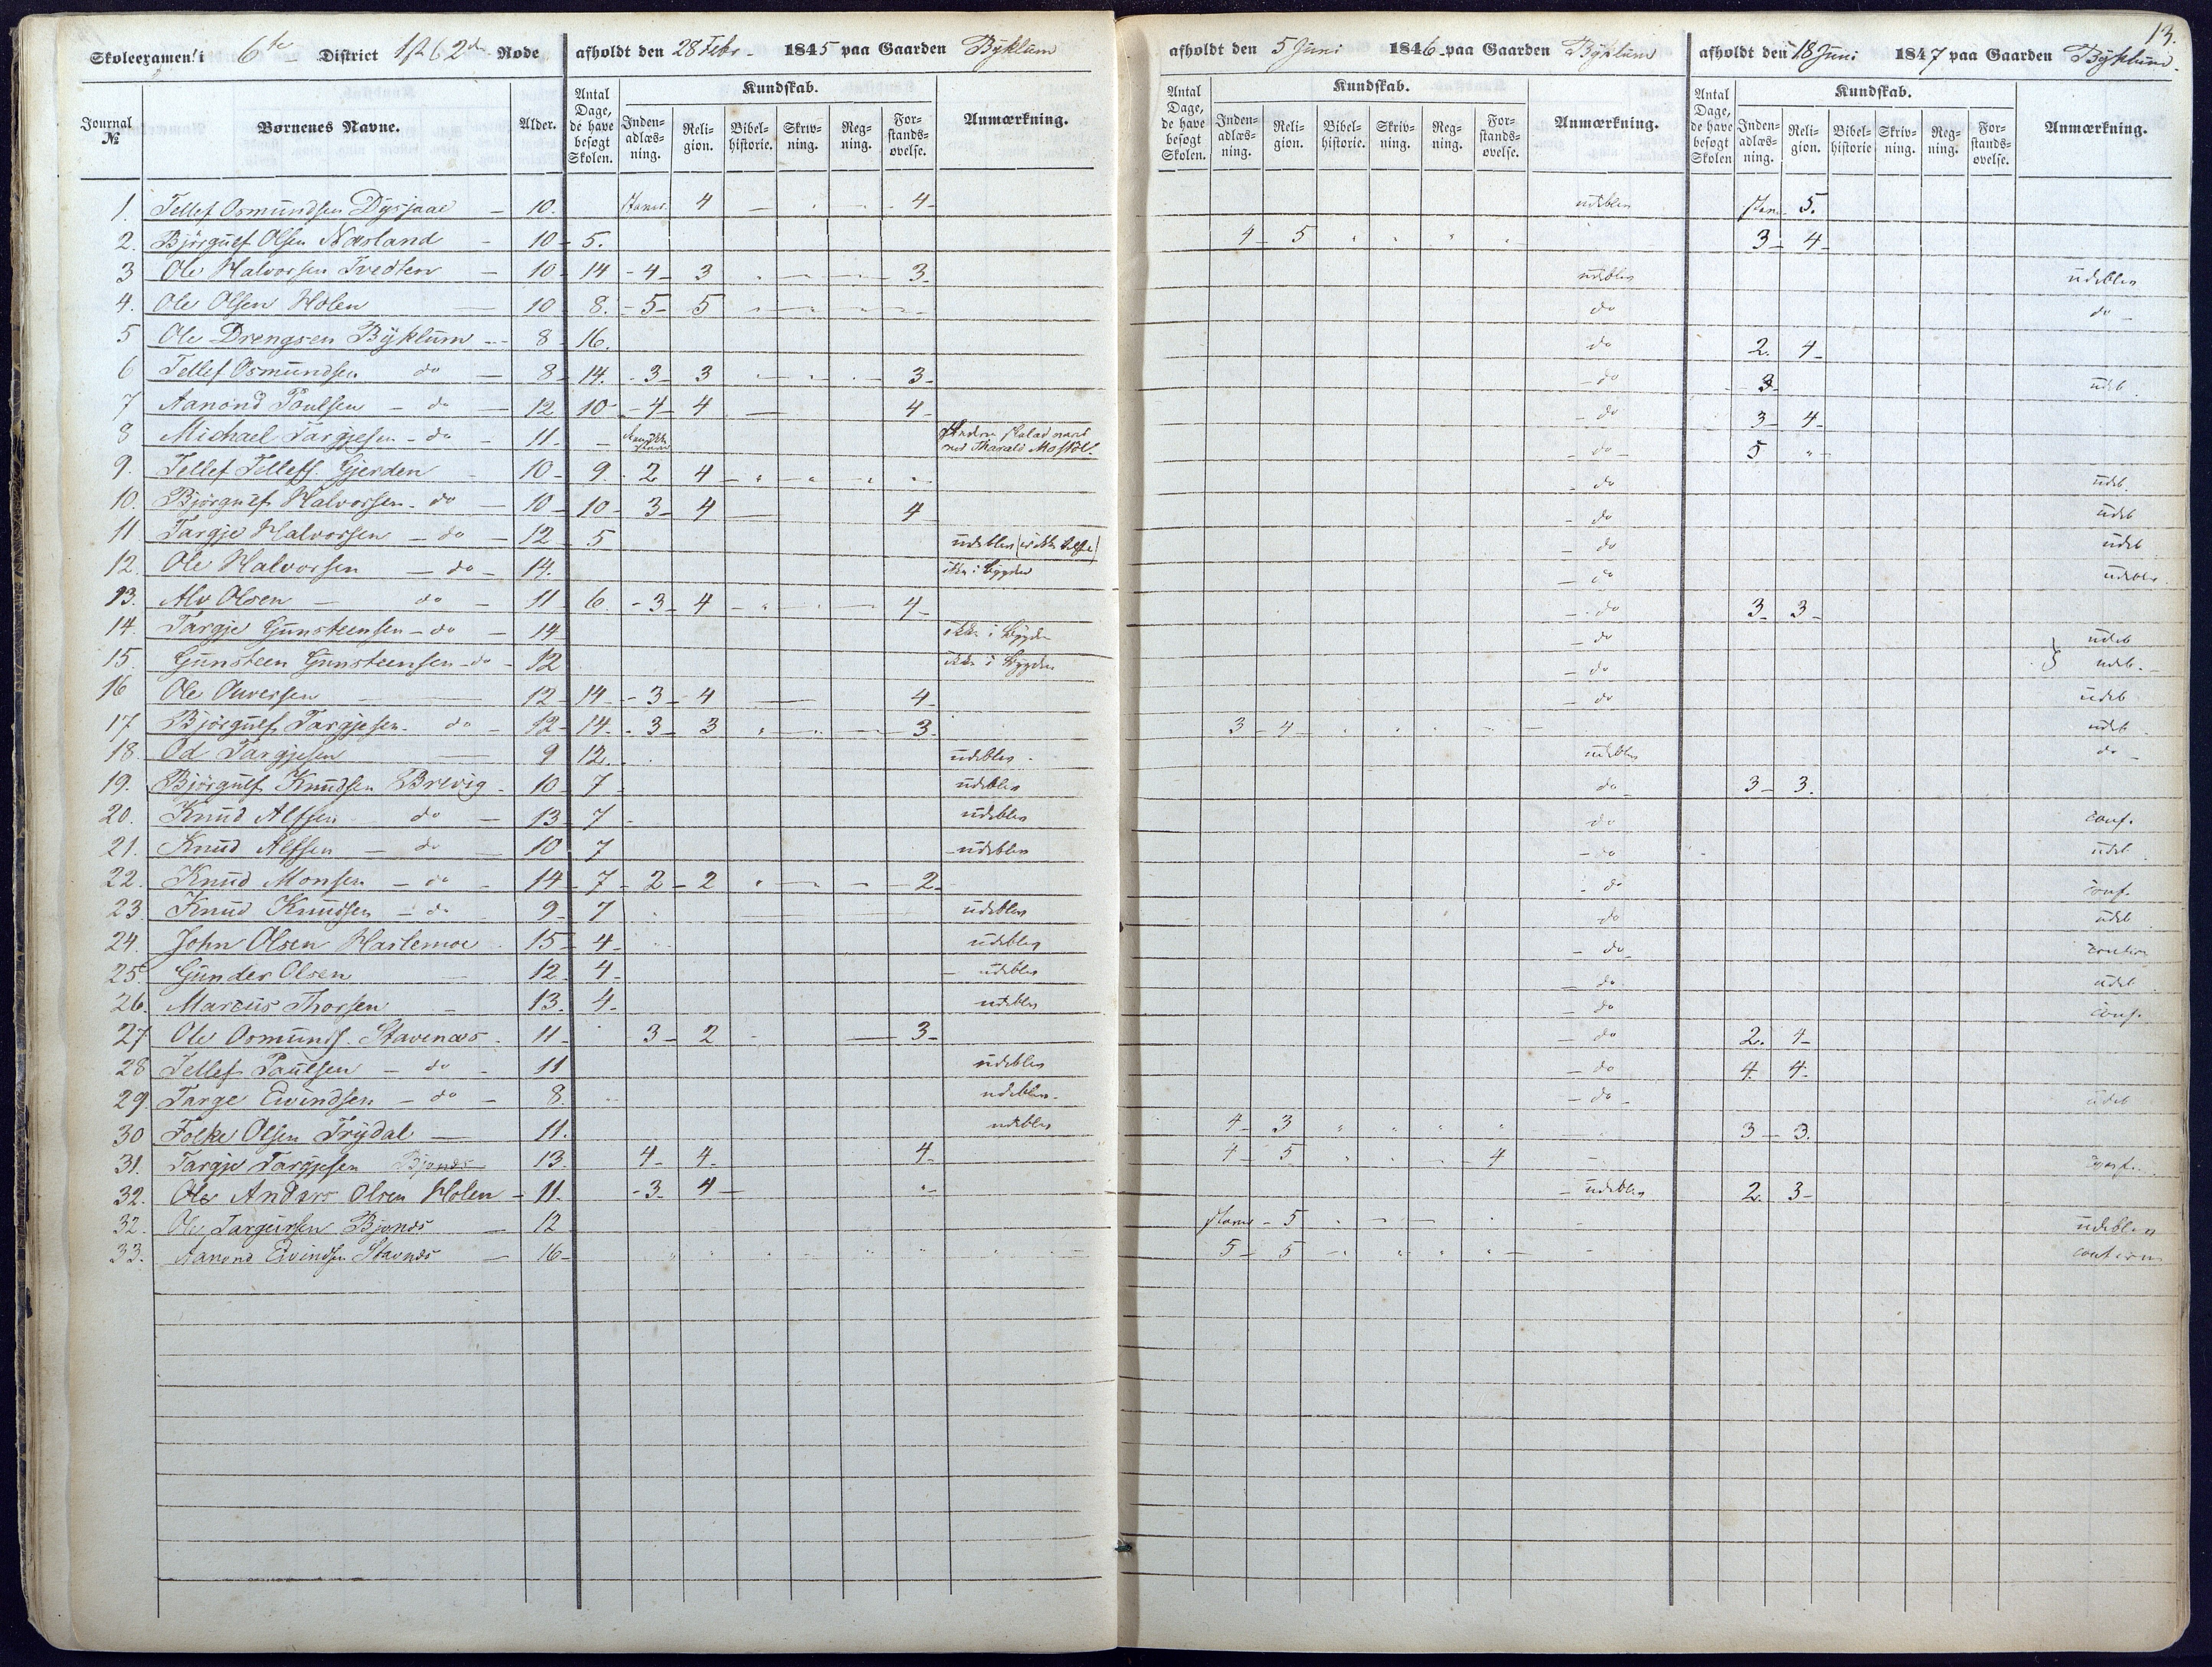 13.
Skoleexamen i 6te District 1st & 2d Rode afholdt den 28 Febr 1845 paa Gaarden Byklum afholdt den 5 Juni 1846 paa Gaarden Byklum afholdt den 18 Juni 1847 paa Gaarden Byklum.
Journal № Børnenes Navne. Alder. Antal Dage, de have besøgt Skolen. Kundskab. Inden-adlæs-ning. Reli-gion. Bibel-historie. Skriv-ning. Reg-ning. For-stands-øvelse. Anmærkning. Antal Dage, de have besøgt Skolen. Kundskab. Inden-adlæs-ning. Reli-gion. Bibel-historie. Skriv-ning. Reg-ning. For-stands-øvelse. Anmærkning. Antal Dage, de have besøgt Skolen Kundskab. Inden-adlæs-ning. Reli-gion. Bibel-historie Skriv-ning. Reg-ning. For-stands-øvelse. Anmærkning.
1. Tellef Osmundsen Dysjaae — 10. staver 4 — 4 udeblev stav 5.
2. Bjørgulf Olsen Næsland - 10 - 5. 4 - 5 " " " " 3 - 4
3 Ole Halvorsen Tvedten — 10 - 14 - 4 - 3 3. udeblev udeblev
4. Ole Olsen Holen — 10 8. - 5 - 5 do do
5 Ole Drengsen Byklum -- 8 - 16. do 2. 4
6 Tellef Osmundsen do — 8 - 14. - 3 - 3 3 - do 3 udeb
7 Aanond Poulsen - do — 12 10 - 4 - 4 — 4 - do 3 - 4
8 Michael Targjesen - do - 11. med Tharald Mostöl. - do - 5 "
9. Tellef Tellefs. Gjerden - 10 - 9. - 2 4 - do udeb.
10. Bjørgulf Halvorsen - do — 10 - 10 - 3 - 4 — 4 - do udeb
11 Targje Halvorsen - do - 12 - 5 udeblev - do udeb
12. Ole Halvorsen - do - 14. ikke i Bygden - do udeblev
13. Alv Olsen — do - 11 - 6. - 3 - 4 - " — 4 - do 3 3
14. Targje Gunsteensen - do - 14 ikke i Bygden - do udeb
15. Gunsteen Gunsteensen - do - 12 ikke i Bygden - do } udeb.
16 Ole Olversen 12 - 14 - 3 - 4 — 4 - do udeb
17. Bjørgulf Targjesen. do — 12 - 14. - 3 3 3. 3 - 4 udeb
18. Od Targjesen — 9 12. udeblev udeblev do
19. Bjørgulf Knudsen Brevig - 10 - 7 udeblev do 3 - 3.
20. Knud Alfsen do — 13 - 7 udeblev do conf.
21. Knud Alfsen - do — 10 7 - udeblev - do udeb
22. Knud Monsen - do - 14 - 7 - 2 - 2 2 - do conf.
23. Knud Knudsen - do 9 - 7 udeblev do udeb
24. John Olsen Hartemoe 15 - 4 - udeblev - do
25. Gunder Olsen - 12 - 4 - udeblev do udeb
26. Marcus Thorsen - 13. 4. udeblev - do conf.
27 Ole Osmunds. Stavenæs - 11 - 3 - 2 — 3 - do 2. 4
28 Tellef Paulsen - do - 11 udeblev - do 4 4
29. Targe Eivindsen - do - 8. udeblev - do udeb
30 Folke Olsen Trydal — 11. udeblev 4 - 3 " " " " 3 - 3.
31. Targje Targjesen 13. 4 - 4. 4 4 - 5 4 conf.
32. Ole Anders Olsen Holen - 11. - 3. 4 - " - udeblev 2. 3
32. Ole Bjønes - 12 staver - 5 udeblev
33. Aanond Eivindsen Stavnæs — 16 5 - 5